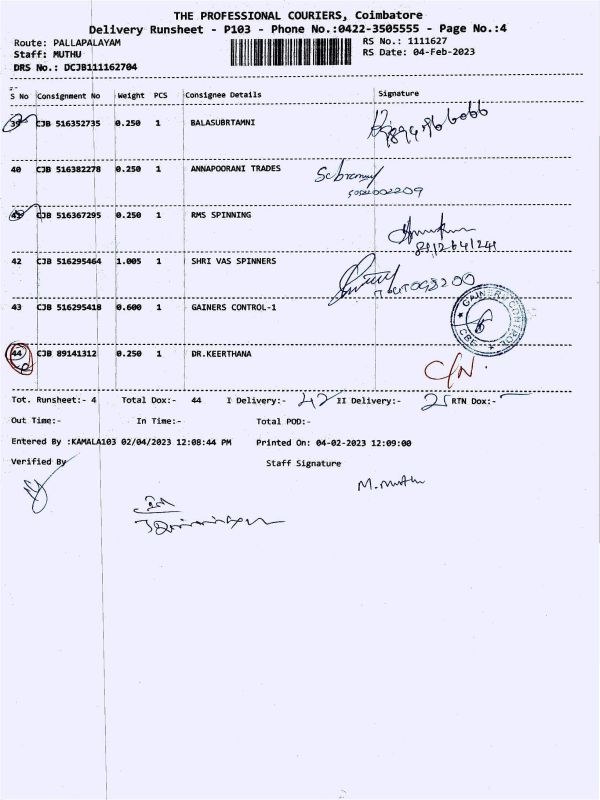 THE PROFESSIONAL COURIERS, Coimbatore
Delivery Runsheet - P103 - Phone No.:0422-3505555 - Page No.:4
Route: PALLAPALAYAM RS No.: 1111627
Staff: MUTHU RS Date: 04-Feb-2023
DRS No.: DCJB111162704
S No Consignment No Weight PCS Consignee Details Signature
39 CJB 516352735 0.250 1 BALASUBRTAMNI
40 CJB 516382278 0.250 1 ANNAPOORANI TRADES
CJB 516367295 0.250 1 RMS SPINNING
42 CJB 516295464 1.005 1 SHRI VAS SPINNERS
43 CJB 516295418 0.600 1 GAINERS CONTROL-1
GAINERS CONTROL
CBE
44 CJB 89141312 0.250 1 DR.KEERTHANA
C/N.
Tot. Runsheet:- 4 Total Dox:- 44 I Delivery:- 42 II Delivery:- 2 RTN Dox:-
Out Time:- In Time:- Total POD:-
Entered By :KAMALA103 02/04/2023 12:08:44 PM Printed On: 04-02-2023 12:09:00
Verified By Staff Signature
M. Muthu